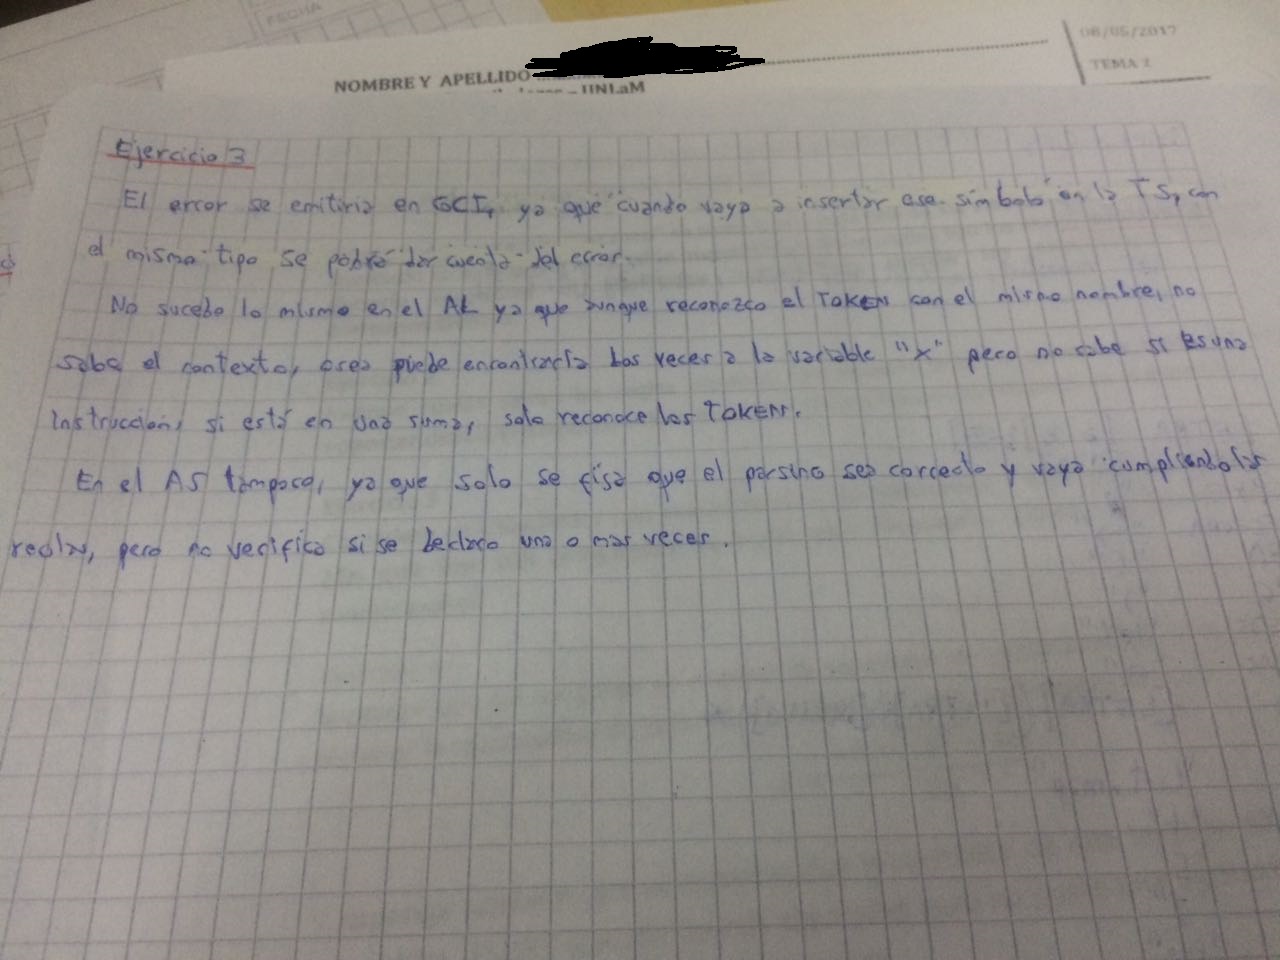 FECHA
08/05/2017
NOMBRE Y APELLIDO
TEMA 1
UNLaM
Ejercicio 3
El error se emitiria en GCI, ya que cuando vaya a insertar ese simbolo en la TS, con
el mismo tipo se podrá dar cuenta del error.
No sucede lo mismo en el AL ya que aunque reconozco el TOKEN con el mismo nombre, no
sabe el contexto, osea puede encontrarla dos veces a la variable "x" pero no sabe si es una
instruccion, si está en una suma, solo reconoce los TOKEN.
En el AS tampoco, ya que solo se fija que el parsing sea correcto y vaya cumpliendo las
reglas, pero no verifica si se declaro una o mas veces.